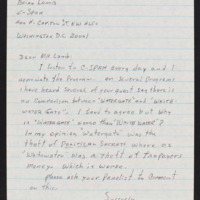 Brian Lamb
C-SPAN
400 N. Capitol St. NW #650
Washington D.C. 20001
Dear Mr. Lamb:
I listen to C-SPAN every day and I
appreciate the program. On several programs
I have heard several of your guest say there is
no comparison between "Watergate" and "White
water Gate". I tend to agree but why
is "Watergate" worse than "Whitewater"?
In my opinion 'Watergate' was the
theft of Political Secrets where as
'Whitewater' was a theft of taxpayers
money. Which is worse.
Please ask your Panelist to comment
on this.
Sincerely